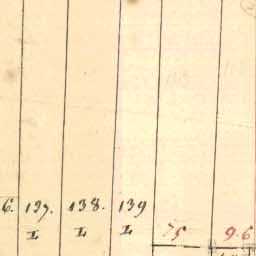 6. 137. 138. 139 75 96
I I I